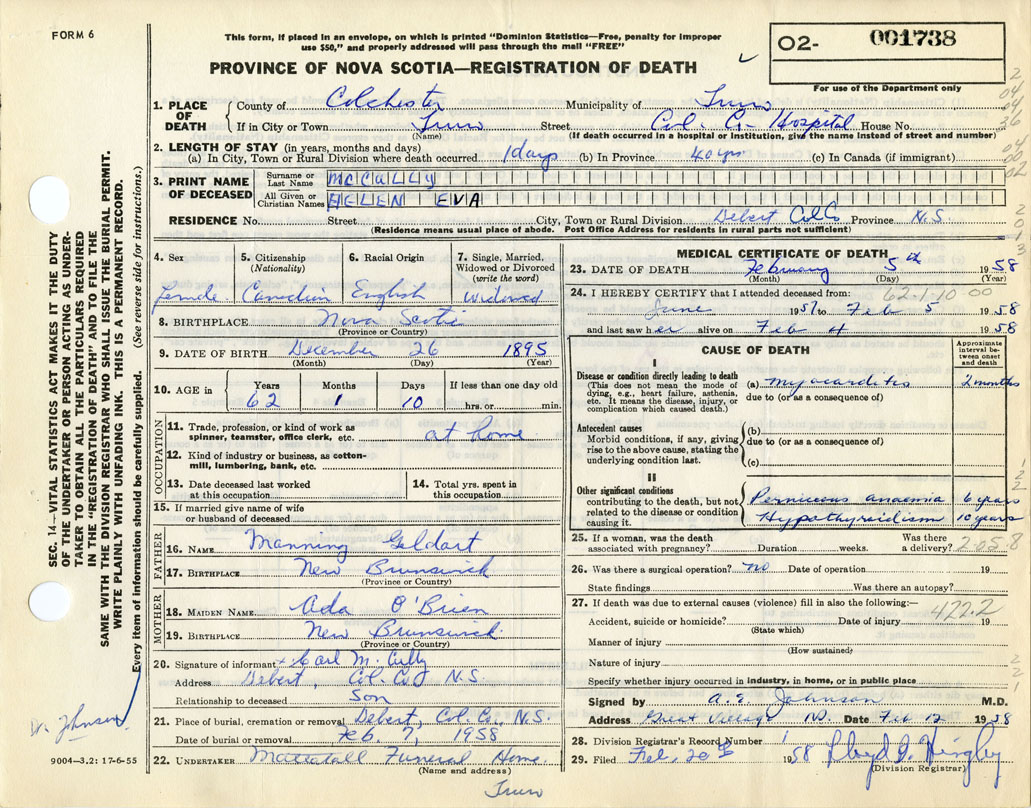 FORM 6
This form, if placed in an envelope, on which is printed "Dominion Statistics—Free, penalty for improper
use $50," and properly addressed will pass through the mail "FREE"
PROVINCE OF NOVA SCOTIA—REGISTRATION OF DEATH
02- 001738
For use of the Department only
1. PLACE OF DEATH
County of Colchester Municipality of Truro
If in City or Town Truro Street Col. Co. Hospital House No.
(Name) (If death occurred in a hospital or institution, give the name instead of street and number)
2. LENGTH OF STAY (in years, months and days)
(a) In City, Town or Rural Division where death occurred 1 days (b) In Province 40 yrs (c) In Canada (if immigrant)
3. PRINT NAME OF DECEASED
Surname or Last Name McCULLY
All Given or Christian Names HELEN EVA
RESIDENCE No. Street City, Town or Rural Division Debert Col Co Province N.S
(Residence means usual place of abode. Post Office Address for residents in rural parts not sufficient)
4. Sex 5. Citizenship (Nationality) 6. Racial Origin 7. Single, Married, Widowed or Divorced (write the word)
female Canadian English Widowed
8. BIRTHPLACE Nova Scotia
(Province or Country)
9. DATE OF BIRTH December 26 1895
(Month) (Day) (Year)
10. AGE in Years Months Days If less than one day old
62 1 10 hrs. or min.
OCCUPATION
11. Trade, profession, or kind of work as spinner, teamster, office clerk, etc. at home
12. Kind of industry or business, as cotton-mill, lumbering, bank, etc.
13. Date deceased last worked at this occupation
14. Total yrs. spent in this occupation
15. If married give name of wife or husband of deceased
FATHER
16. NAME Manning Geldart
17. BIRTHPLACE New Brunswick
(Province or Country)
MOTHER
18. MAIDEN NAME Ada O'Brien
19. BIRTHPLACE New Brunswick
(Province or Country)
20. Signature of informant x Carl McCully
Address Debert, Col. Co N.S.
Relationship to deceased Son
21. Place of burial, cremation or removal Debert, Col. Co., N.S.
Date of burial or removal Feb. 7, 1958
22. UNDERTAKER Mattatall Funeral Home
(Name and address)
Truro
MEDICAL CERTIFICATE OF DEATH
23. DATE OF DEATH February 5th 1958
(Month) (Day) (Year)
24. I HEREBY CERTIFY that I attended deceased from: 62-1-10 00
June 1957 to Feb 5 1958
and last saw her alive on Feb 4 1958
CAUSE OF DEATH
Approximate interval between onset and death
I
Disease or condition directly leading to death
(This does not mean the mode of dying, e.g., heart failure, asthenia, etc. It means the disease, injury, or complication which caused death.)
(a) myocarditis 2 months
due to (or as a consequence of)
Antecedent causes
Morbid conditions, if any, giving rise to the above cause, stating the underlying condition last.
(b)
due to (or as a consequence of)
(c)
II
Other significant conditions
contributing to the death, but not related to the disease or condition causing it.
Pernicious anaemia 6 years
Hypothyroidism 10 years
25. If a woman, was the death associated with pregnancy? Duration weeks. Was there a delivery? 2058
26. Was there a surgical operation? no Date of operation 19
State findings Was there an autopsy?
27. If death was due to external causes (violence) fill in also the following:—
422.2
Accident, suicide or homicide? Date of injury 19
(State which)
Manner of injury
(How sustained)
Nature of injury
Specify whether injury occurred in industry, in home, or in public place
Signed by A. E. Johnson M.D.
Address Great Village N.S. Date Feb 12 1958
28. Division Registrar's Record Number 1
29. Filed Feb, 20th 1958
(Division Registrar)
SEC. 14—VITAL STATISTICS ACT MAKES IT THE DUTY
OF THE UNDERTAKER OR PERSON ACTING AS UNDER-
TAKER TO OBTAIN ALL THE PARTICULARS REQUIRED
IN THE "REGISTRATION OF DEATH" AND TO FILE THE
SAME WITH THE DIVISION REGISTRAR WHO SHALL ISSUE THE BURIAL PERMIT.
WRITE PLAINLY WITH UNFADING INK. THIS IS A PERMANENT RECORD.
Every item of information should be carefully supplied. (See reverse side for instructions.)
Dr. Johnson
9004—3.2: 17-6-55